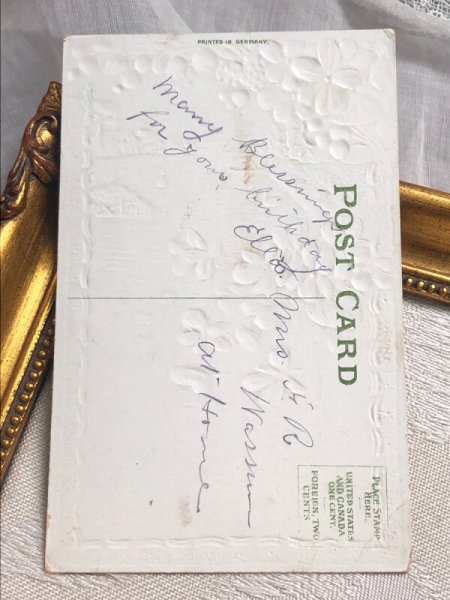 PRINTED IN GERMANY.
POST CARD
PLACE STAMP
HERE.
UNITED STATES
AND CANADA
ONE CENT.
FOREIGN, TWO
CENTS
Many Blessings
for your birthday
Mrs. H R
at Home